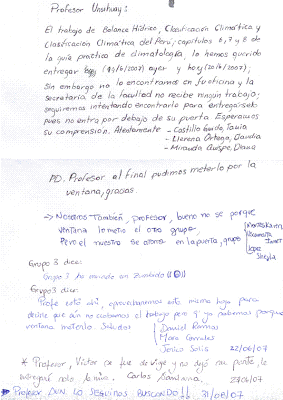 Profesor Unsihuay:
El trabajo de Balance Hídrico, Clasificación Climática y
Clasificación Climática del Perú, capítulos 6, 7 y 8 de
la guía práctica de climatología, lo hemos querido
entregar (19/6/2007) ayer y hoy (20/6/2007);
Sin embargo no lo encontramos en su oficina y la
Secretaria de la facultad no recibe ningún trabajo;
seguiremos intentando encontrarlo para entregárselo
pues no entra por debajo de su puerta. Esperamos
su comprensión. Atentamente - Castillo Tania
- Llerena Ortega, Claudia
- Miranda Quispe, Diana
PD. Profesor al final pudimos meterlo por la
ventana, gracias.
→ Nosotros También, profesor, bueno no se porque
ventana lo metio el otro grupo,
Pero el nuestro se atoro en la puerta, grupo
Janet
Lopez
Sheyla
Grupo 3 dice:
Grupo 3 ha marcado en Zumbando
Grupo 3 dice:
Profe está allí, aprovecharemos este mismo hoja para
decirle que aún no acabamos el trabajo pero q' ya sabemos porque
ventana meterlo. Saludos
Daniel Ramos
Marc Gonzales
Jerico Solis 22/06/07
* Profesor, Victor se fue de viaje y no dejó su parte, lo
entregaré solo lo mio. Carlos Santana. 27/06/07
* Profesor AUN LO SEGUIMOS BUSCANDO!!. 31/08/07